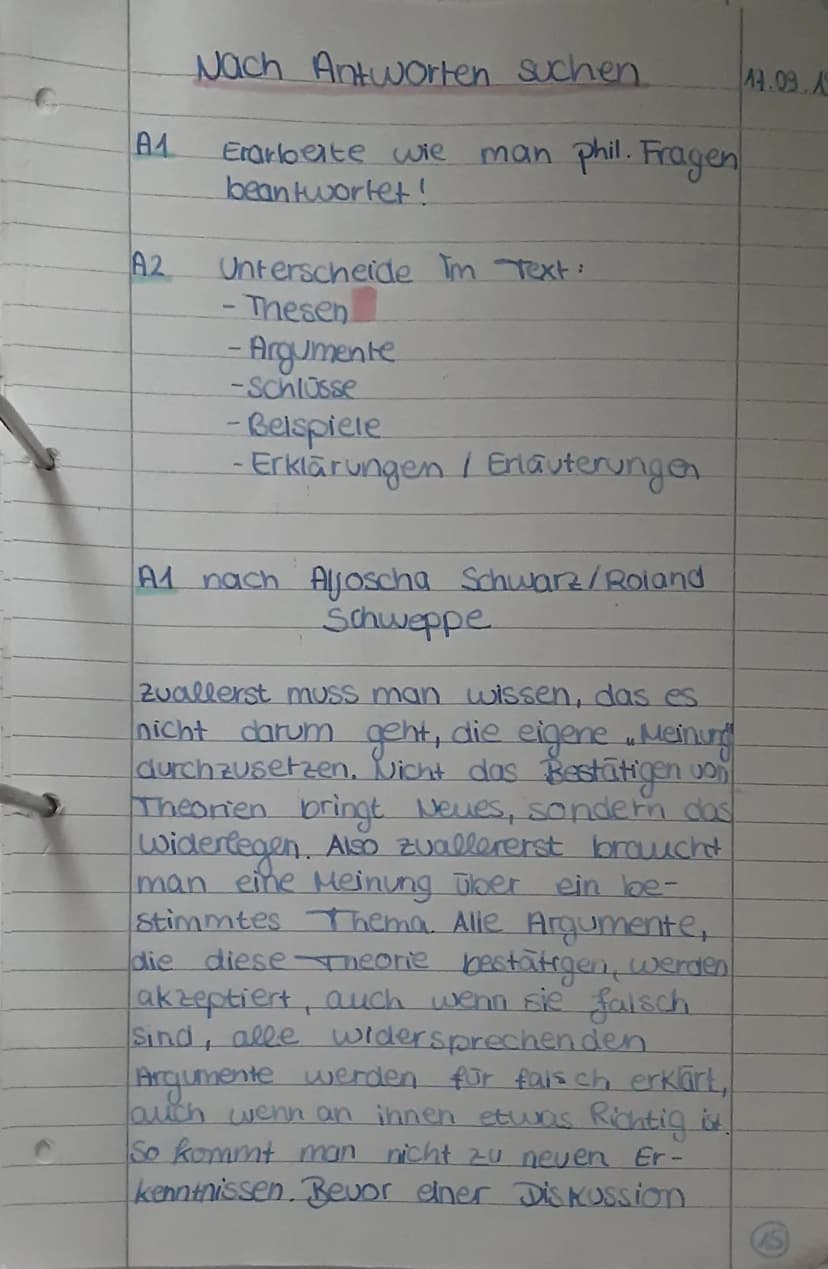 Nach Antworten suchen
17.09.1
A1 Erarbeite wie man phil. Fragen
beantwortet!
A2 Unterscheide im Text:
- Thesen
- Argumente
- Schlüsse
- Beispiele
- Erklärungen / Erläuterungen
A1 nach Ayoscha Schwarz/Roland
Schweppe
zuallerst muss man wissen, das es
nicht darum geht, die eigene „Meinung"
durchzusetzen. Nicht das Bestätigen von
Theorien bringt Neues, sondern das
Widerlegen. Also zuallererst braucht
man eine Meinung über ein be-
stimmtes Thema. Alle Argumente,
die diese Theorie bestätigen, werden
akzeptiert, auch wenn sie falsch
sind, alle widersprechenden
Argumente werden für falsch erklärt,
auch wenn an ihnen etwas Richtig ist.
So kommt man nicht zu neuen Er-
kenntnissen. Bevor einer Diskussion
15